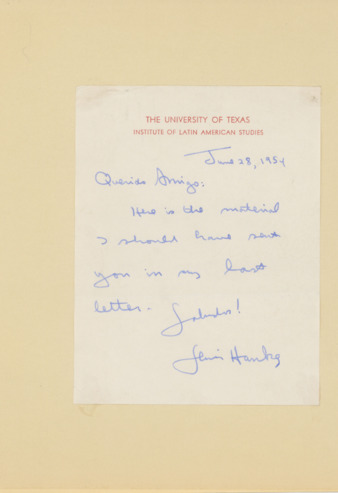 THE UNIVERSITY OF TEXAS
INSTITUTE OF LATIN AMERICAN STUDIES
June 28, 1954
Querido Amigo:
Here is the material
I should have sent
you in my last
letter. Saludos!
Lewis Hanke